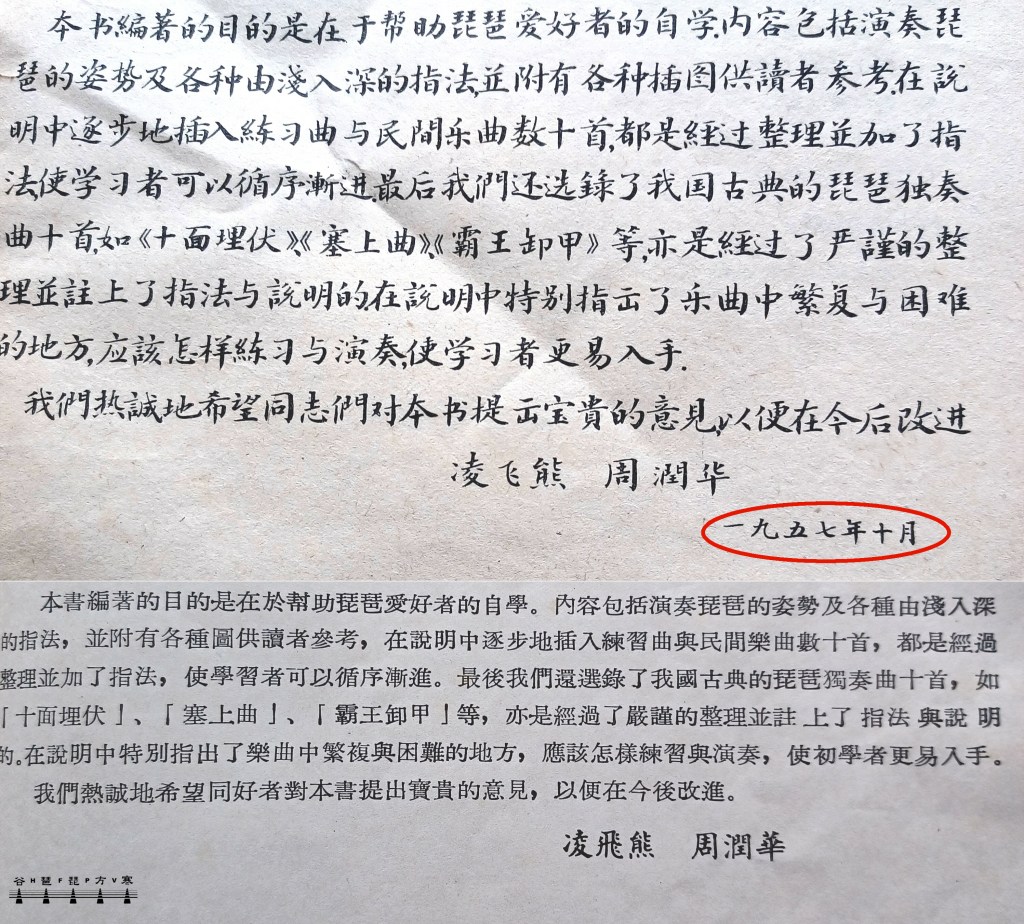 本书編著的目的是在于帮助琵琶爱好者的自学.内容包括演奏琵
琶的姿势及各种由淺入深的指法,並附有各种插图供讀者参考.在説
明中逐步地插入練习曲与民間乐曲数十首,都是經过整理並加了指
法,使学习者可以循序漸进.最后我們还选錄了我国古典的琵琶独奏
曲十首,如《十面埋伏》、《塞上曲》、《霸王卸甲》等,亦是經过了严謹的整
理並註上了指法与説明的.在説明中特别指出了乐曲中繁复与困难
的地方,应該怎样練习与演奏,使学习者更易入手.
我們热誠地希望同志們对本书提出宝貴的意見,以便在今后改进
凌飞熊 周潤华
一九五七年十月
本書編著的目的是在於幫助琵琶愛好者的自學。內容包括演奏琵琶的姿勢及各種由淺入深
的指法，並附有各種圖供讀者參考，在說明中逐步地插入練習曲與民間樂曲數十首，都是經過
整理並加了指法，使學習者可以循序漸進。最後我們還選錄了我國古典的琵琶獨奏曲十首，如
「十面埋伏」、「塞上曲」、「霸王卸甲」等，亦是經過了嚴謹的整理並註上了指法與說明
的。在說明中特別指出了樂曲中繁複與困難的地方，應該怎樣練習與演奏，使初學者更易入手。
我們熱誠地希望同好者對本書提出寶貴的意見，以便在今後改進。
凌飛熊 周潤華
谷H琶F琵P方V寒